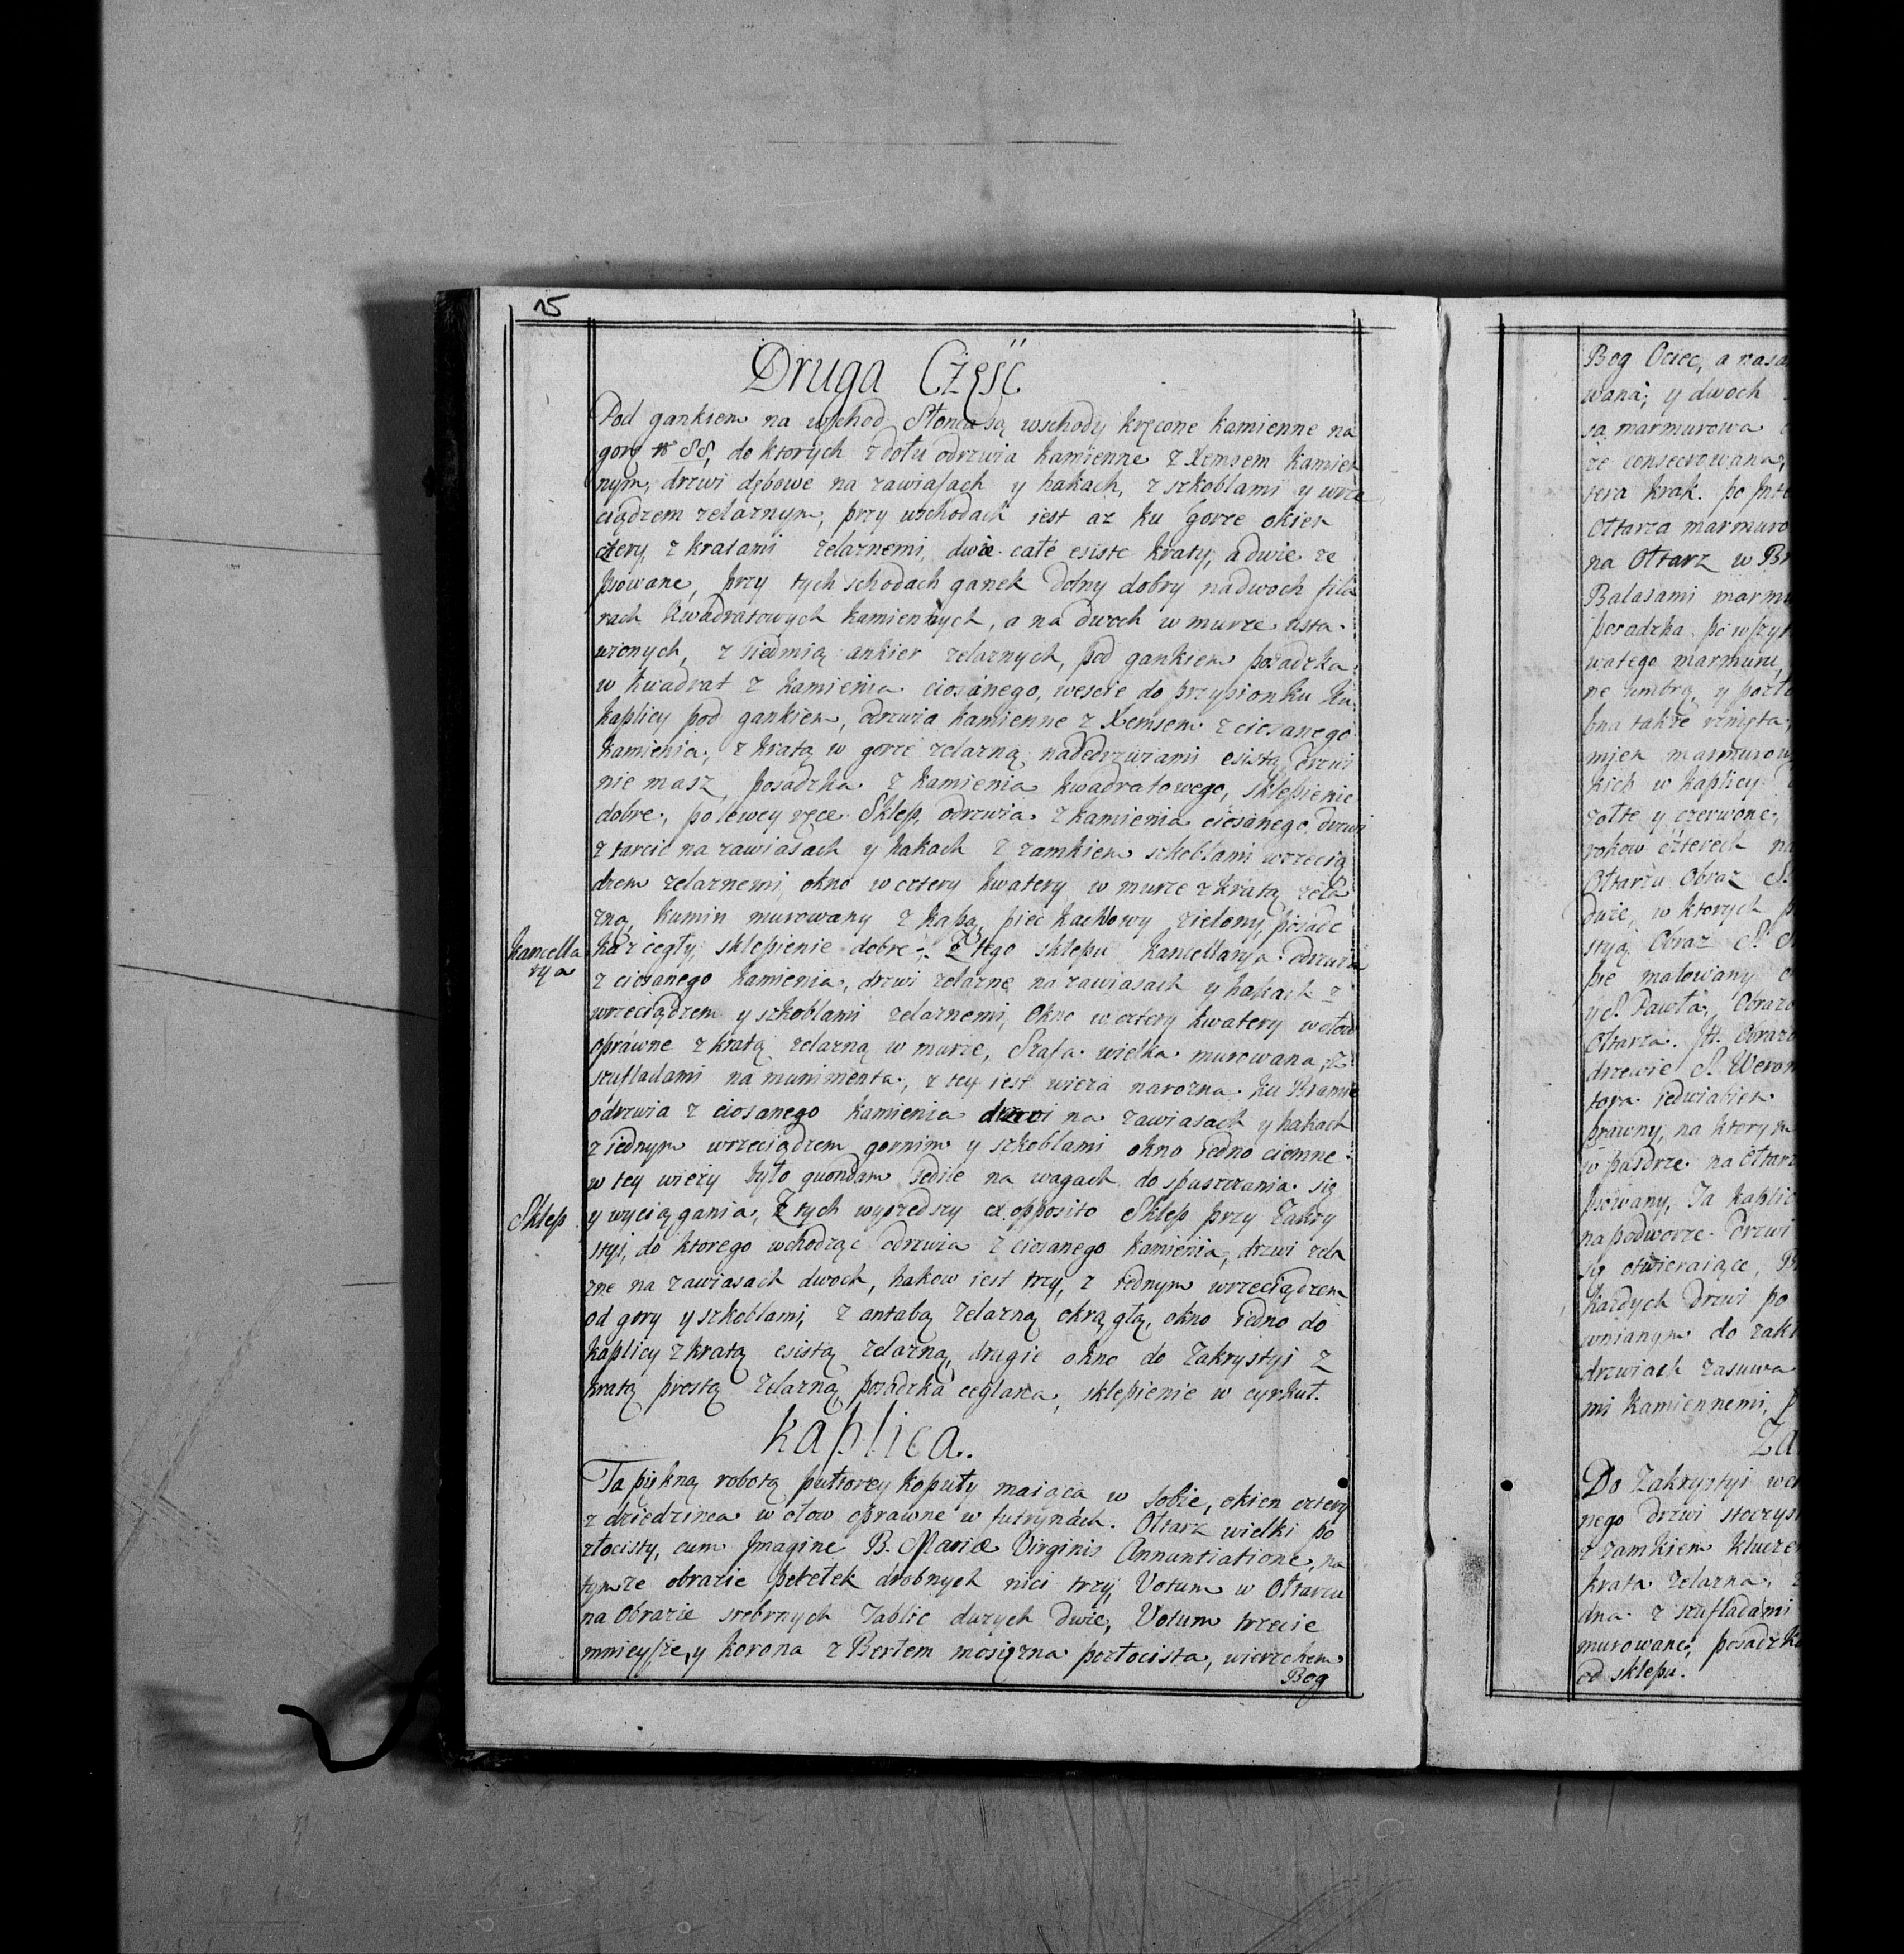 15
Druga Część
Pod gankiem na wschod Słonca są wschody kręcone kamienne na
gorę 88, do ktorych z dołu odrzwia kamienne z Xemsem kamien
nym, drzwi dębowe na zawiasach y hakach, z szkoblami y wrze
ciądzem zelaznym, przy wschodach iest az ku gorze okien
cztery z kratami zelaznemi, dwie całe esiste kraty, a dwie ze
psowane, przy tych schodach ganek dolny dobry na dwoch fila
rach kwadratowych kamiennych, a na dwoch w murze usta
wionych, z siedmią ankier zelaznych, pod gankiem posadzka
w kwadrat z kamienia ciosanego, weście do przysionku ku
kaplicy pod gankiem, odrzwia kamienne z Xemsem z ciosanego
kamienia, z kratą w gorze zelazną nadedrzwiami esistą, drzwi
nie masz, posadzka z kamienia kwadratowego, sklepienie
dobre, po lewey ręce Sklep, odrzwia z kamienia ciosanego, drzwi
z tarcic na zawiasach y hakach z zamkiem szkoblami wrzecią
dzem zelaznemi, okno w cztery kwatery w murze z kratą zela
zną, kumin murowany z kapą, piec kachlowy zielony, posadz
ka z cegły, sklepienie dobre, Z tego sklepu kancellarya odrzwia
kancella
rya
z ciosanego kamienia, drzwi zelazne na zawiasach y hakach z
wrzeciądzem y szkoblami zelaznemi, Okno w cztery kwatery w ołow
oprawne z kratą zelazną w murze, Szafa wielka murowana z
szufladami na munimenta, z tey iest wieza narozna ku Bramie
odrzwia z ciosanego kamienia drzwi na zawiasach y hakach
z iednym wrzeciądzem gornim y szkoblami okno iedno ciemne
w tey wieży było quondam sedile na wagach do spuszczania się
y wyciągania, Z tych wyszedszy ex opposito Sklep przy Zakry
Sklep
styi, do ktorego wchodząc odrzwia z ciosanego kamienia, drzwi zela
zne na zawiasach dwoch, hakow iest trzy, z iednym wrzeciądzem
od gory y szkoblami, z antabą zelazną okrągłą, okno iedno do
kaplicy z kratą esistą zelazną, drugie okno do Zakrystyi z
kratą prostą zelazną, posadzka ceglana, sklepienie w cyrkuł.
Kaplica.
Ta piękną robotą pułtorey kopuły maiąca w sobie, okien cztery
z dziedzinca w ołow oprawne w futrynach. Ołtarz wielki po
złocisty, cum Imagine B. Mariæ Virginis Annuntiatione, na
tymze obrazie perełek drobnych nici trzy, Votum w Ołtarzu
na Obrazie srebrnych Tablic duzych dwie, Votum trzecie
mnieysze, y korona z Berłem mosięzna pozłocista, wierzchem
Bog
Bog Ociec, a nasa
wana, y dwoch
sa marmurowa
ze consecrowana,
sera krak. po
Ołtarza marmuro
na Ołtarz w Br
Balasami marmu
posadzka po wszyt
watego marmuru,
ne umbrą, y pozło
bna także rznięta,
mien marmurow
kich w kaplicy
żołte y czerwone,
rokow czterech na
Ołtarzu Obraz S.
duże, w ktorych
styą, Obraz S.
pie malowany
y S. Pawła, Obrazo
Ołtarza. It. Obrazo
drzewie S. Weron
prawny, na ktorym
w pasdrze na Ołtarz
psowany, Ta kaplic
na podworze drzwi
się otwieraiące,
kazdych drzwi po
wnianym do zakr
drzwiach zasuwa
mi kamiennemi,
Za
Do Zakrystyi wch
nego drzwi stoczyst
z zamkiem kluczem
krata zelazna,
dna z szufladami
murowane, posadzka
od sklepu.